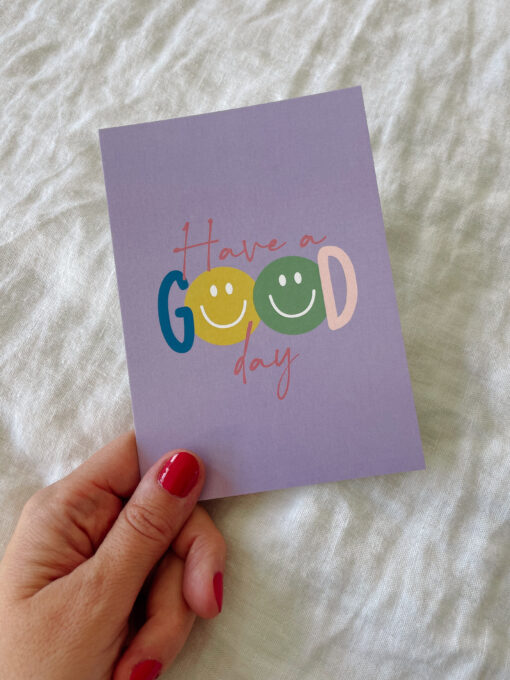 Have a
GOOD
day